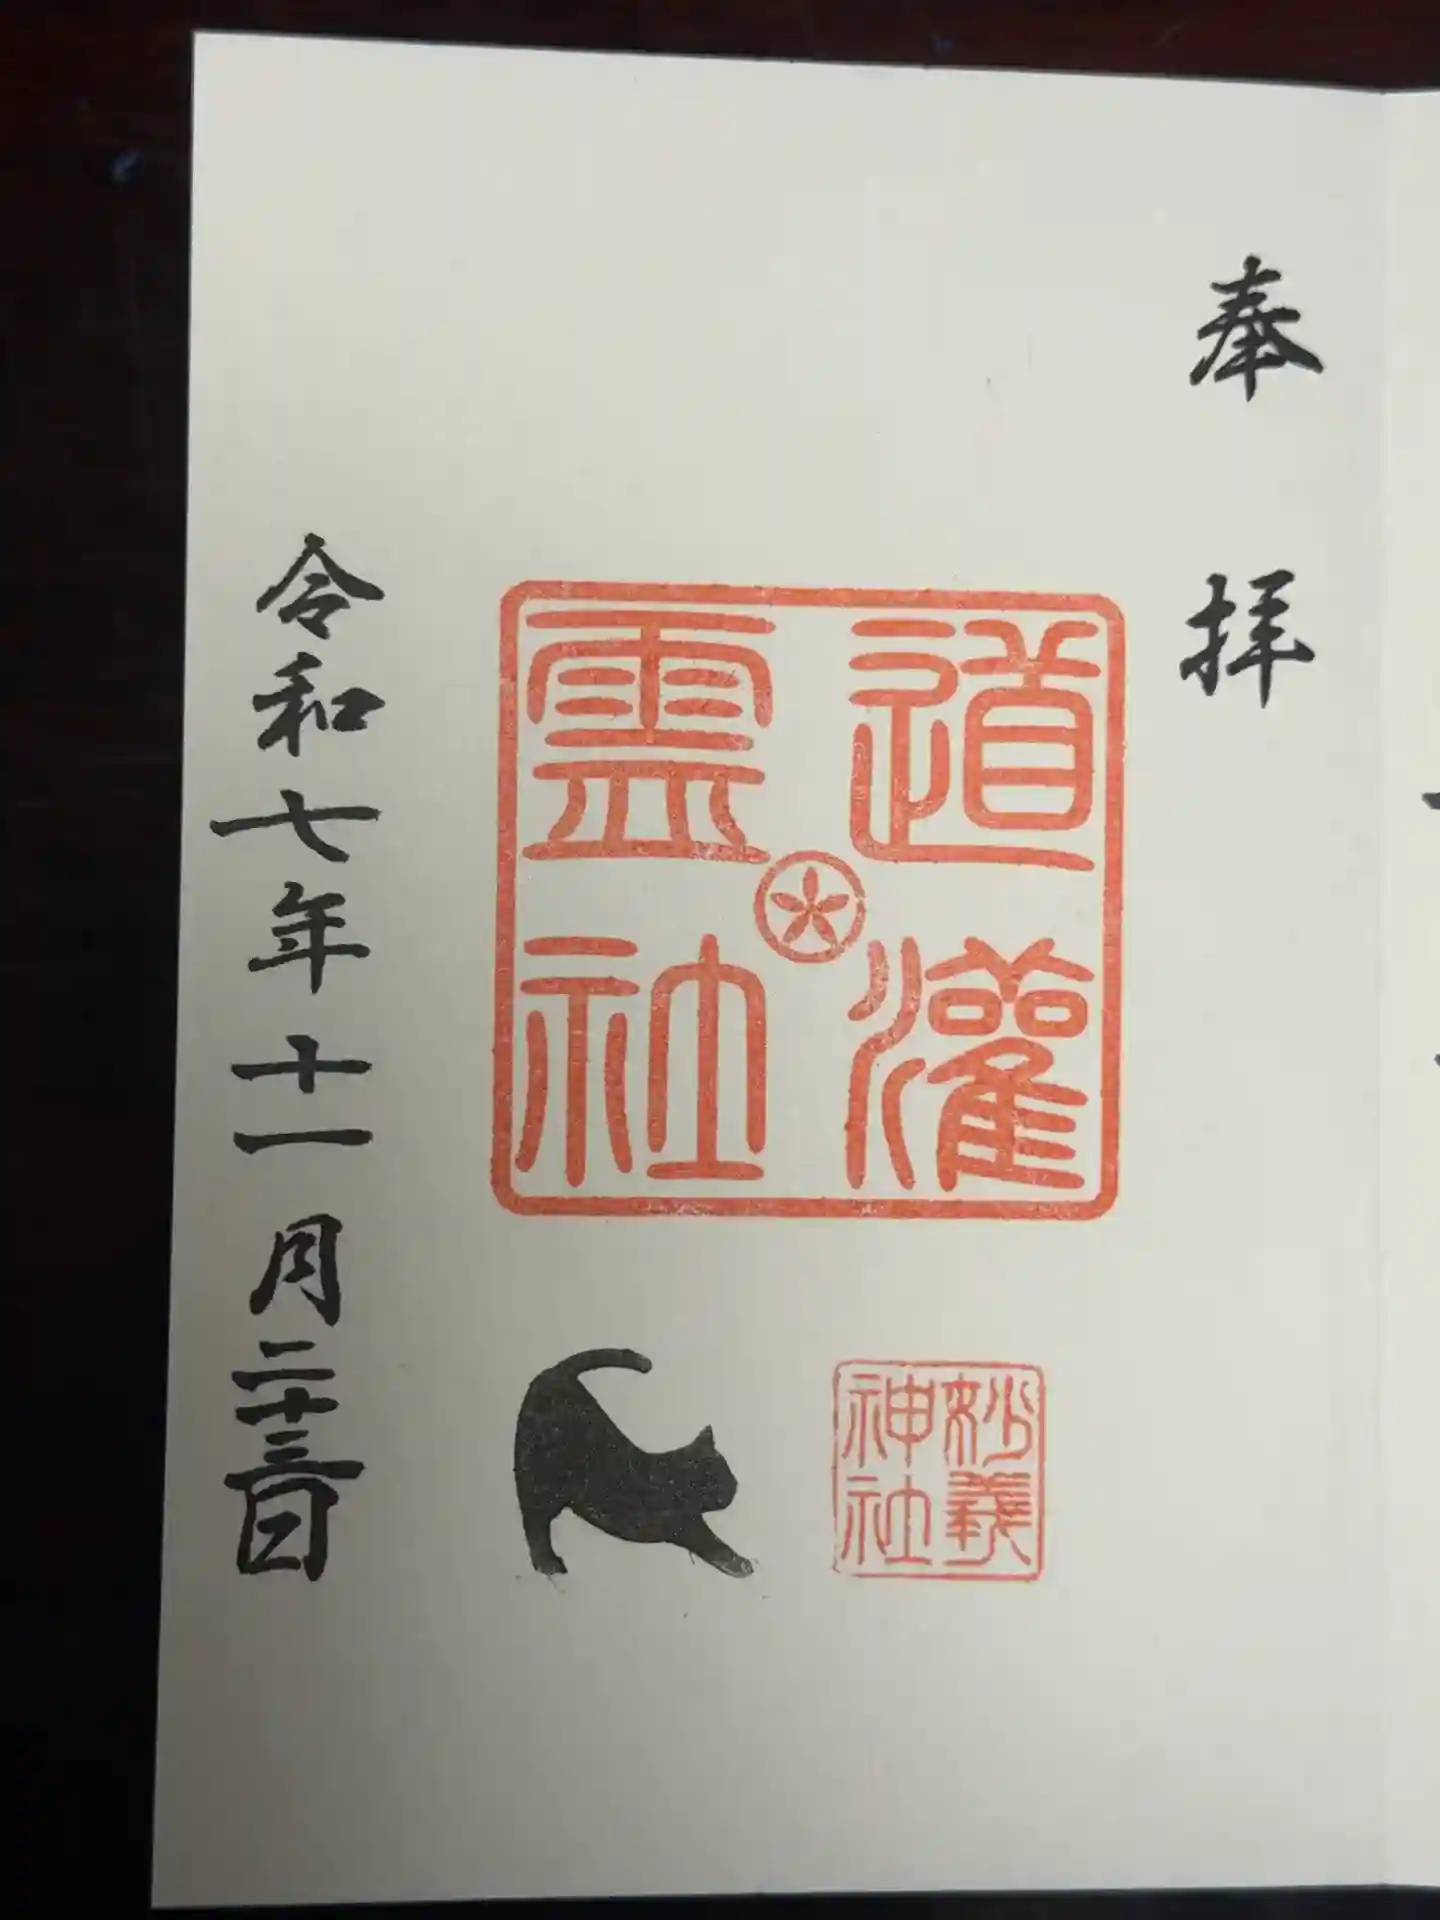 奉拝
道灌
霊社
妙義
神社
令和七年十一月二十三日